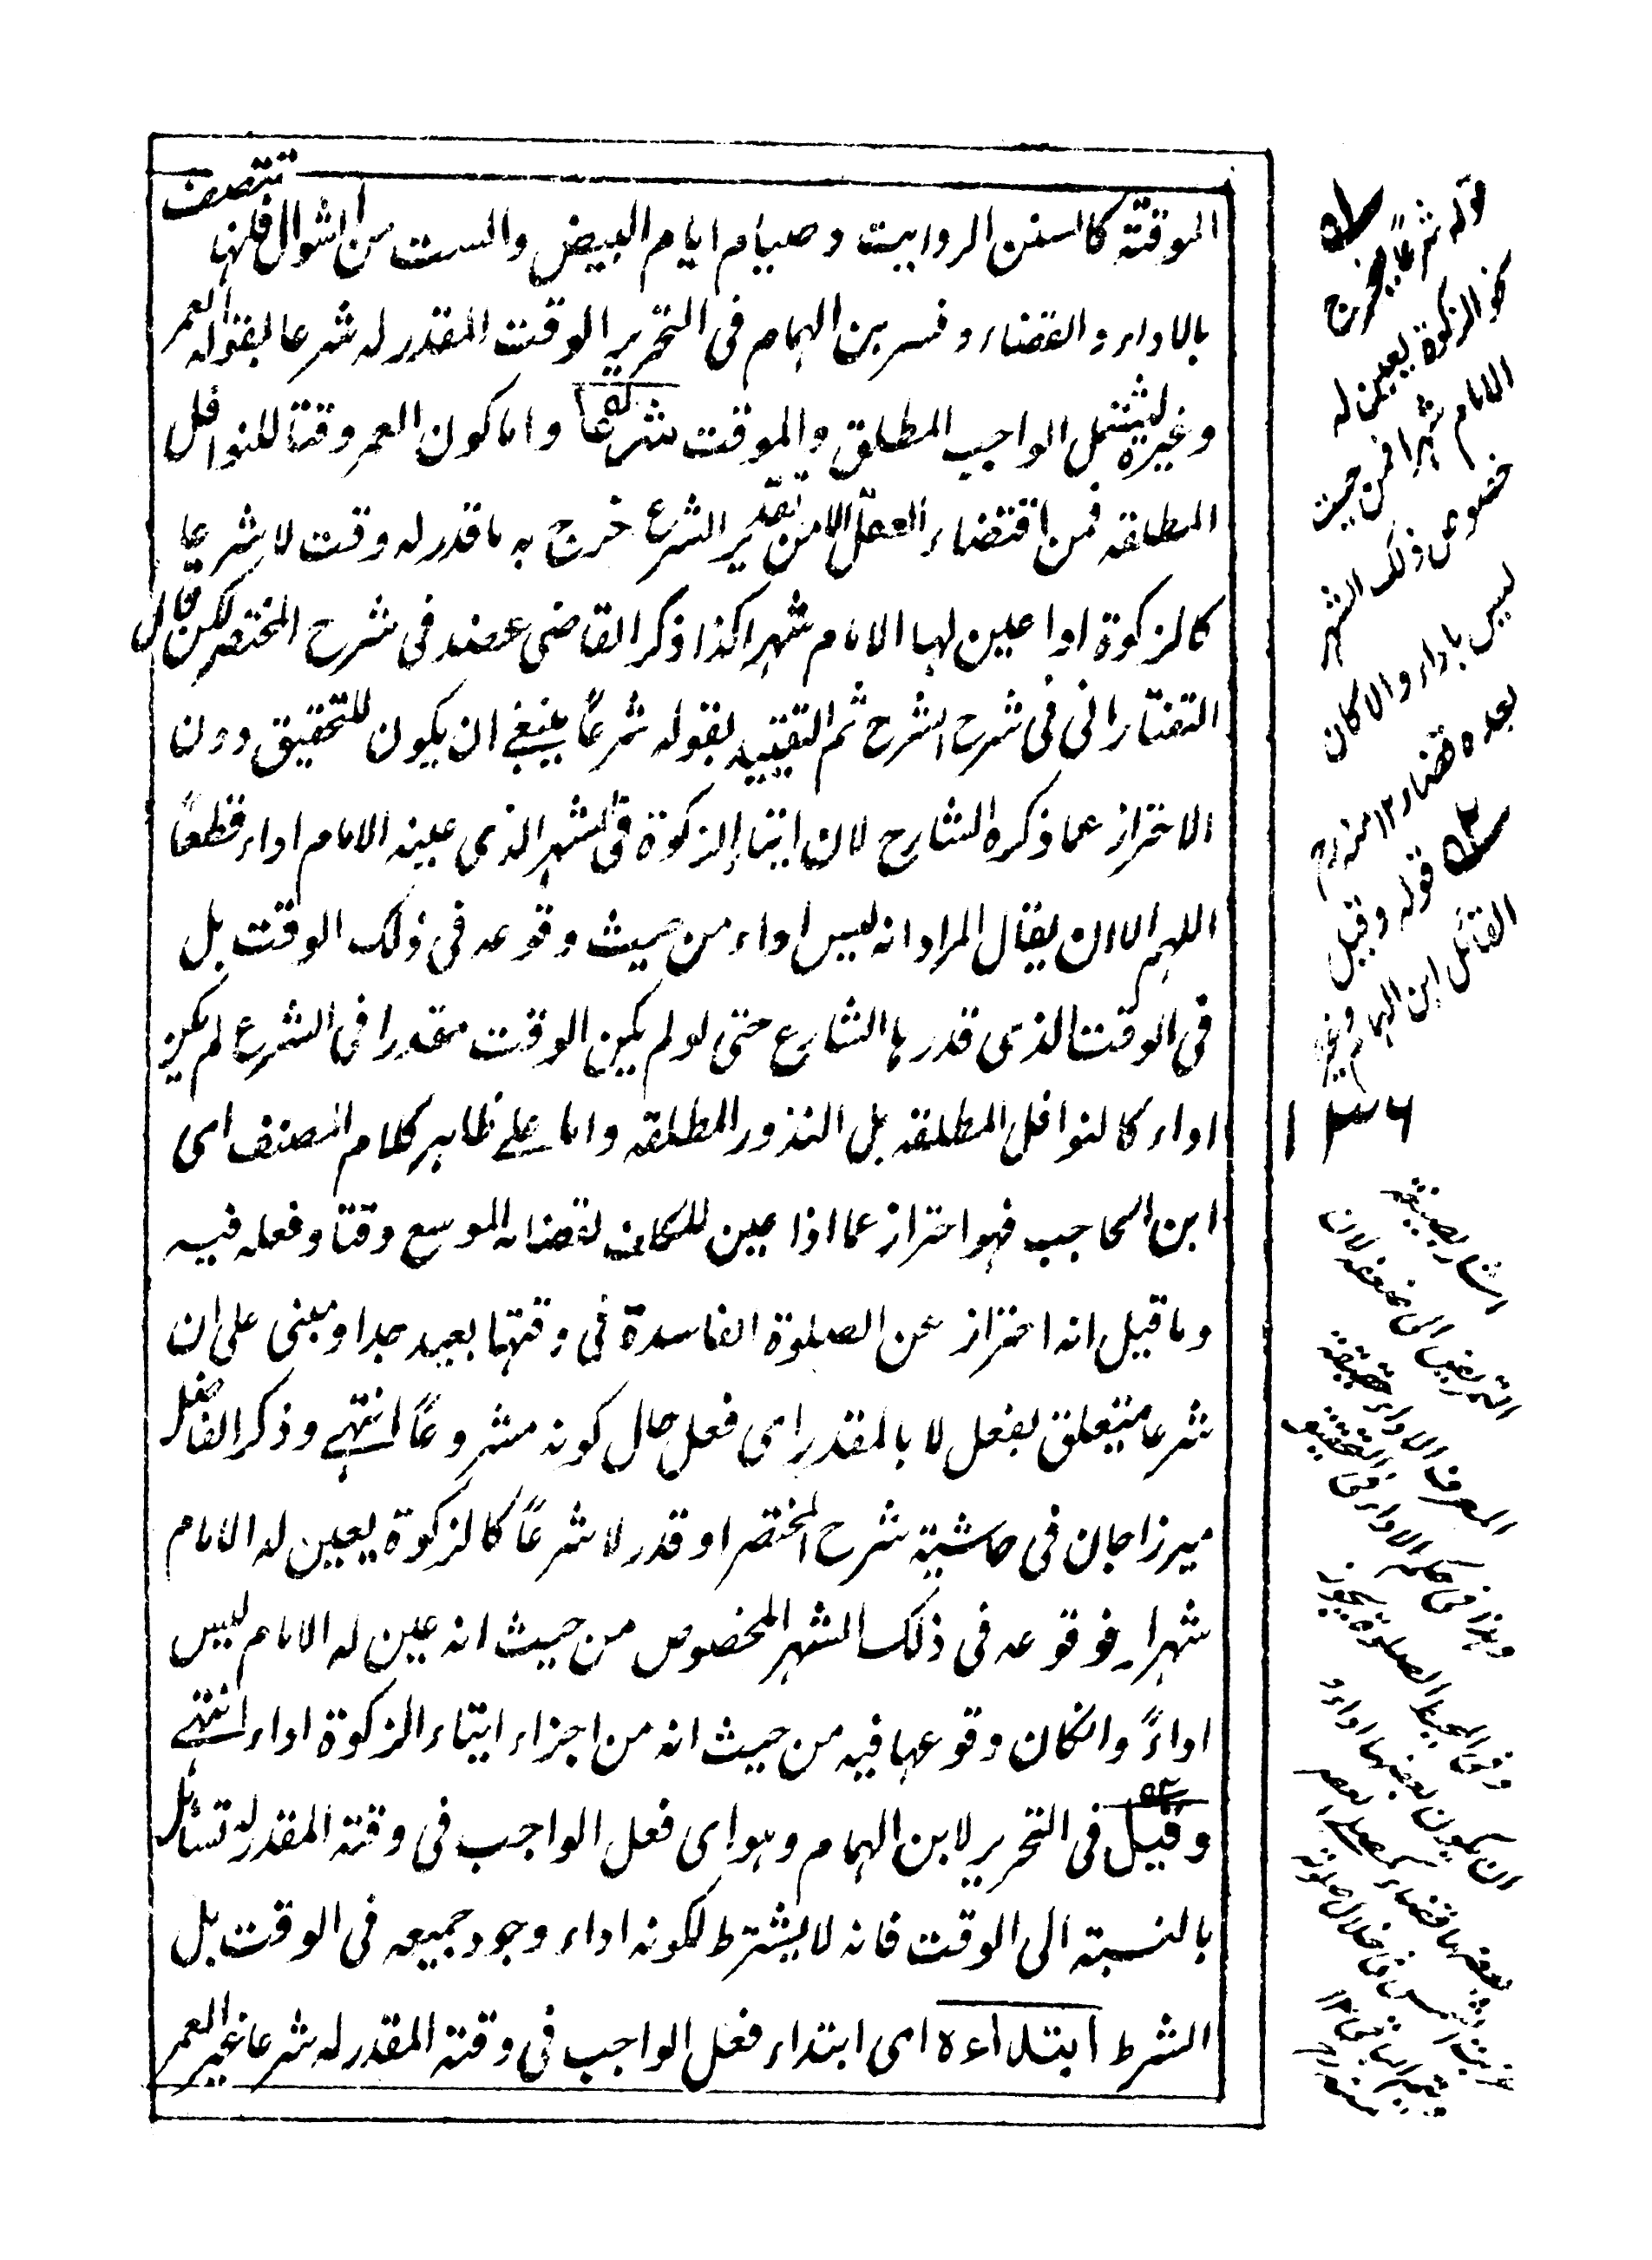 الموقتة كالسنن الرواتب وصيام ايام البيض والست من الشوال فلنها تتصف
بالاداء والقضاء وفسر ابن الهمام فى التحرير الوقت المقدر له شرعا بقوله العمر
وغيره ليشتمل الواجب المطلق والموقت شرعا واما كون العمر وقتا للنوافل
المطلقة فمن اقتضاء العقل لا من تقدير الشرع خرج به ما قدر له وقت لا شرعا
كالزكوة اذا عين لها الامام شهرا كذا ذكر القاضى عضد فى شرح المختصر لكن قال
التفتازانى فى شرح الشرح ثم التقييد بقوله شرعًا ينبغى ان يكون للتحقيق دون
الاحتراز عما ذكره الشارح لان ايتاء الزكوة فى الشهر الذى عينه الامام اداء قطعًا
اللهم الا ان يقال المراد انه ليس اداء من حيث وقوعه فى ذلك الوقت بل
فى الوقت الذى قدرها الشارع حتى لو لم يكن الوقت مقدرا فى الشرع لم يكن
اداء كالنوافل المطلقة بل النذور المطلقة واما على ظاهر كلام المصنف اى
ابن الحاجب فهو احتراز عما اذا عين المكلف لقضائه الموسع وقتا وفعله فيه
وما قيل انه احتراز عن الصلوة الفاسدة فى وقتها بعيد جدا ومبنى على ان
شرعا متعلق بفعل لا بالمقدر اى فعل حال كونه مشروعًا انتهى وذكر الفاضل
ميرزا جان فى حاشية شرح المختصر او قدر لا شرعًا كالزكوة يعين له الامام
شهرا فوقوعه فى ذلك الشهر المخصوص من حيث انه عين له الامام ليس
اداءً وانكان وقوعها فيه من حيث انه من اجزاء ايتاء الزكوة اداء انتهى
وقيل فى التحرير لابن الهمام وهو اى فعل الواجب فى وقته المقدر له تساهل
بالنسبة الى الوقت فانه لا يشترط لكونه اداء وجود جميعه فى الوقت بل
الشرط ابتداءه اى ابتداء فعل الواجب فى وقته المقدر له شرعا غير العمر
قوله شرعًا يخرج
نحو الزكوة يعين له
الامام شهرا فمن حيث
خصوص ذلك الشهر
ليس باداء والا كان
بعده قضاء ١٢ منه رح
قوله وقيل
القائل ابن الهمام وغيره
١٣٦
اشار بصيغة
التمريض الى ضعفه لان
المعرف الاداء حقيقة
وهذا فى حكم الاداء فى التحقيق
وفى المحيط الصلوة يجوز
ان يكون بعضها اداء و
بعضها قضاء كمصلى العصر
غربت الشمس فى خلال صلوته